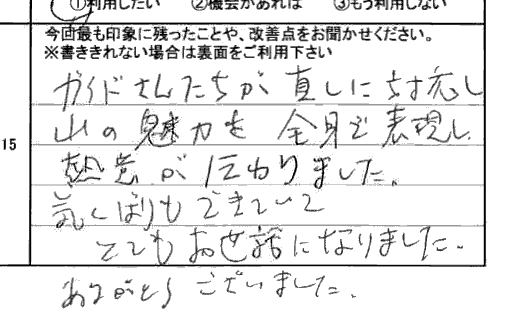 ①利用したい ②機会があれば ③もう利用しない
今回最も印象に残ったことや、改善点をお聞かせください。
※書ききれない場合は裏面をご利用下さい
15
ガイドさんたちが 直しに対応し
山の魅力を 全身で表現し
熱意が伝わりました。
気くばりもできていて
とてもお世話になりました。
ありがとうございました。